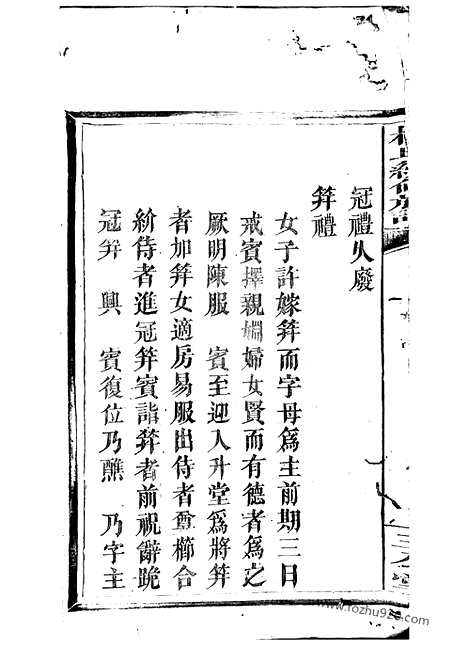 冠禮久廢
笄禮
女子許嫁笄而字母爲主前期三日
戒賓擇親婣婦女賢而有德者爲之
厥明陳服　賓至迎入升堂爲將笄
者加笄女適房易服出侍者奠櫛合
紒侍者進冠笄賓詣笄者前祝辭跪
冠笄　興　賓復位乃醮　乃字主
www.fozhu920.com